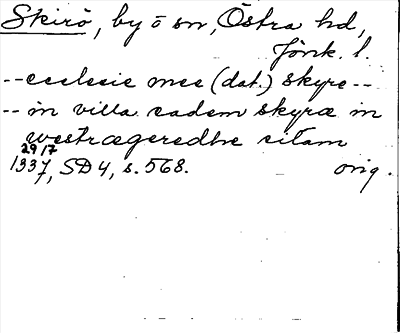 Skirö, by ö sn, Östra hd,
Jönk. l.
-- ecclesie mee (dat.) skyre --
-- in villa eadem skyræ in
westrægeredhe sitam
29/7
1337, SD 4, s. 568. orig.